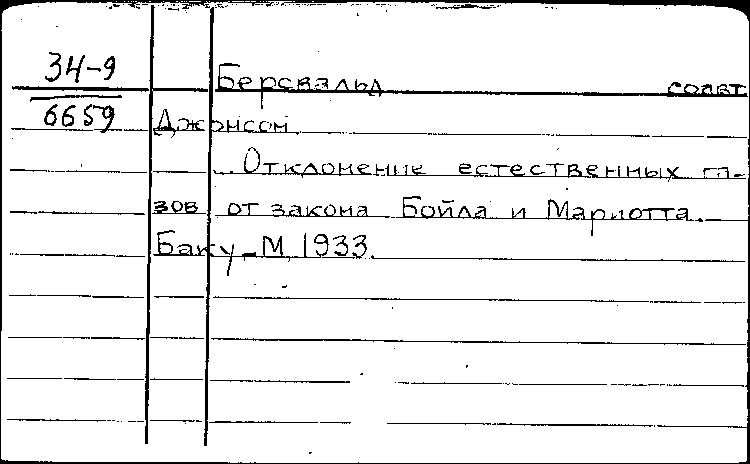 34-9 Берсвальд соавт
6659 Джонсон.
Отклонение естественных га-
зов от закона Бойла и Мариотта.-
Баку-М, 1933.